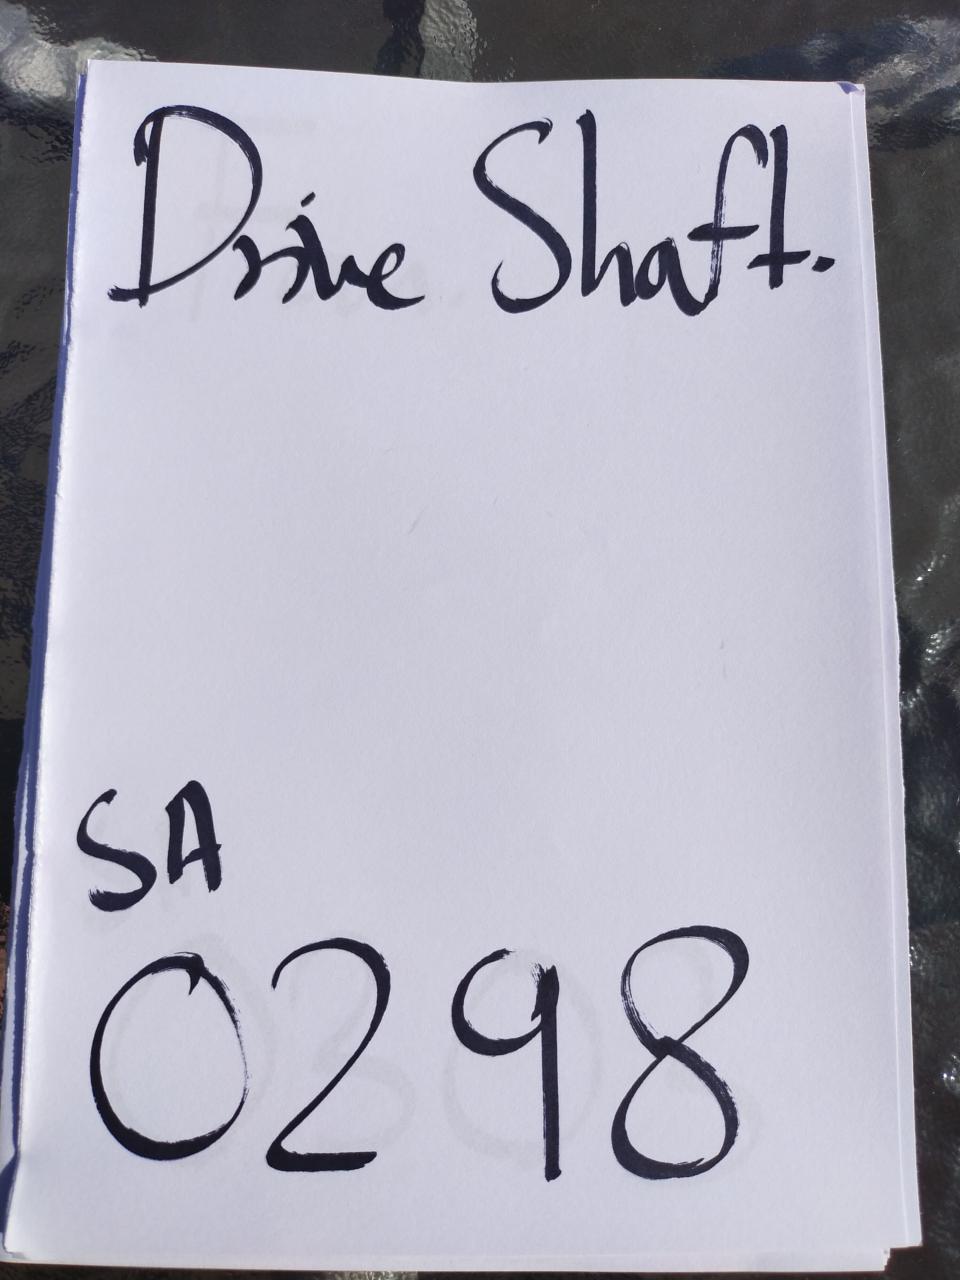 Drive Shaft.
SA
0298